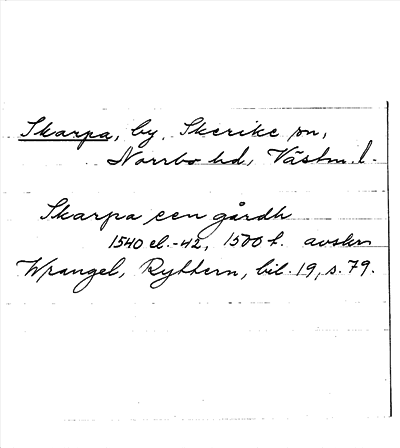 Skarpa, by, Skerike sn,
Norrbo hd, Västm. l.
Skarpa een gårdh
1540 el. -42, 1500 t. avskr.
Wrangel, Ryttern, bil. 19, s. 79.